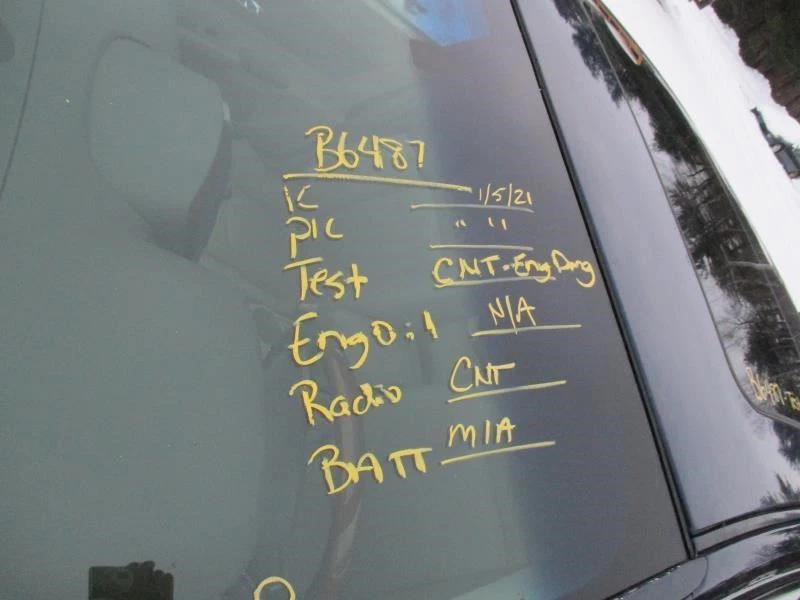 B6487
IC 1/5/21
PIC " "
Test CNT-Eng Dmg
Eng Oil N/A
Radio CNT
BATT MIA